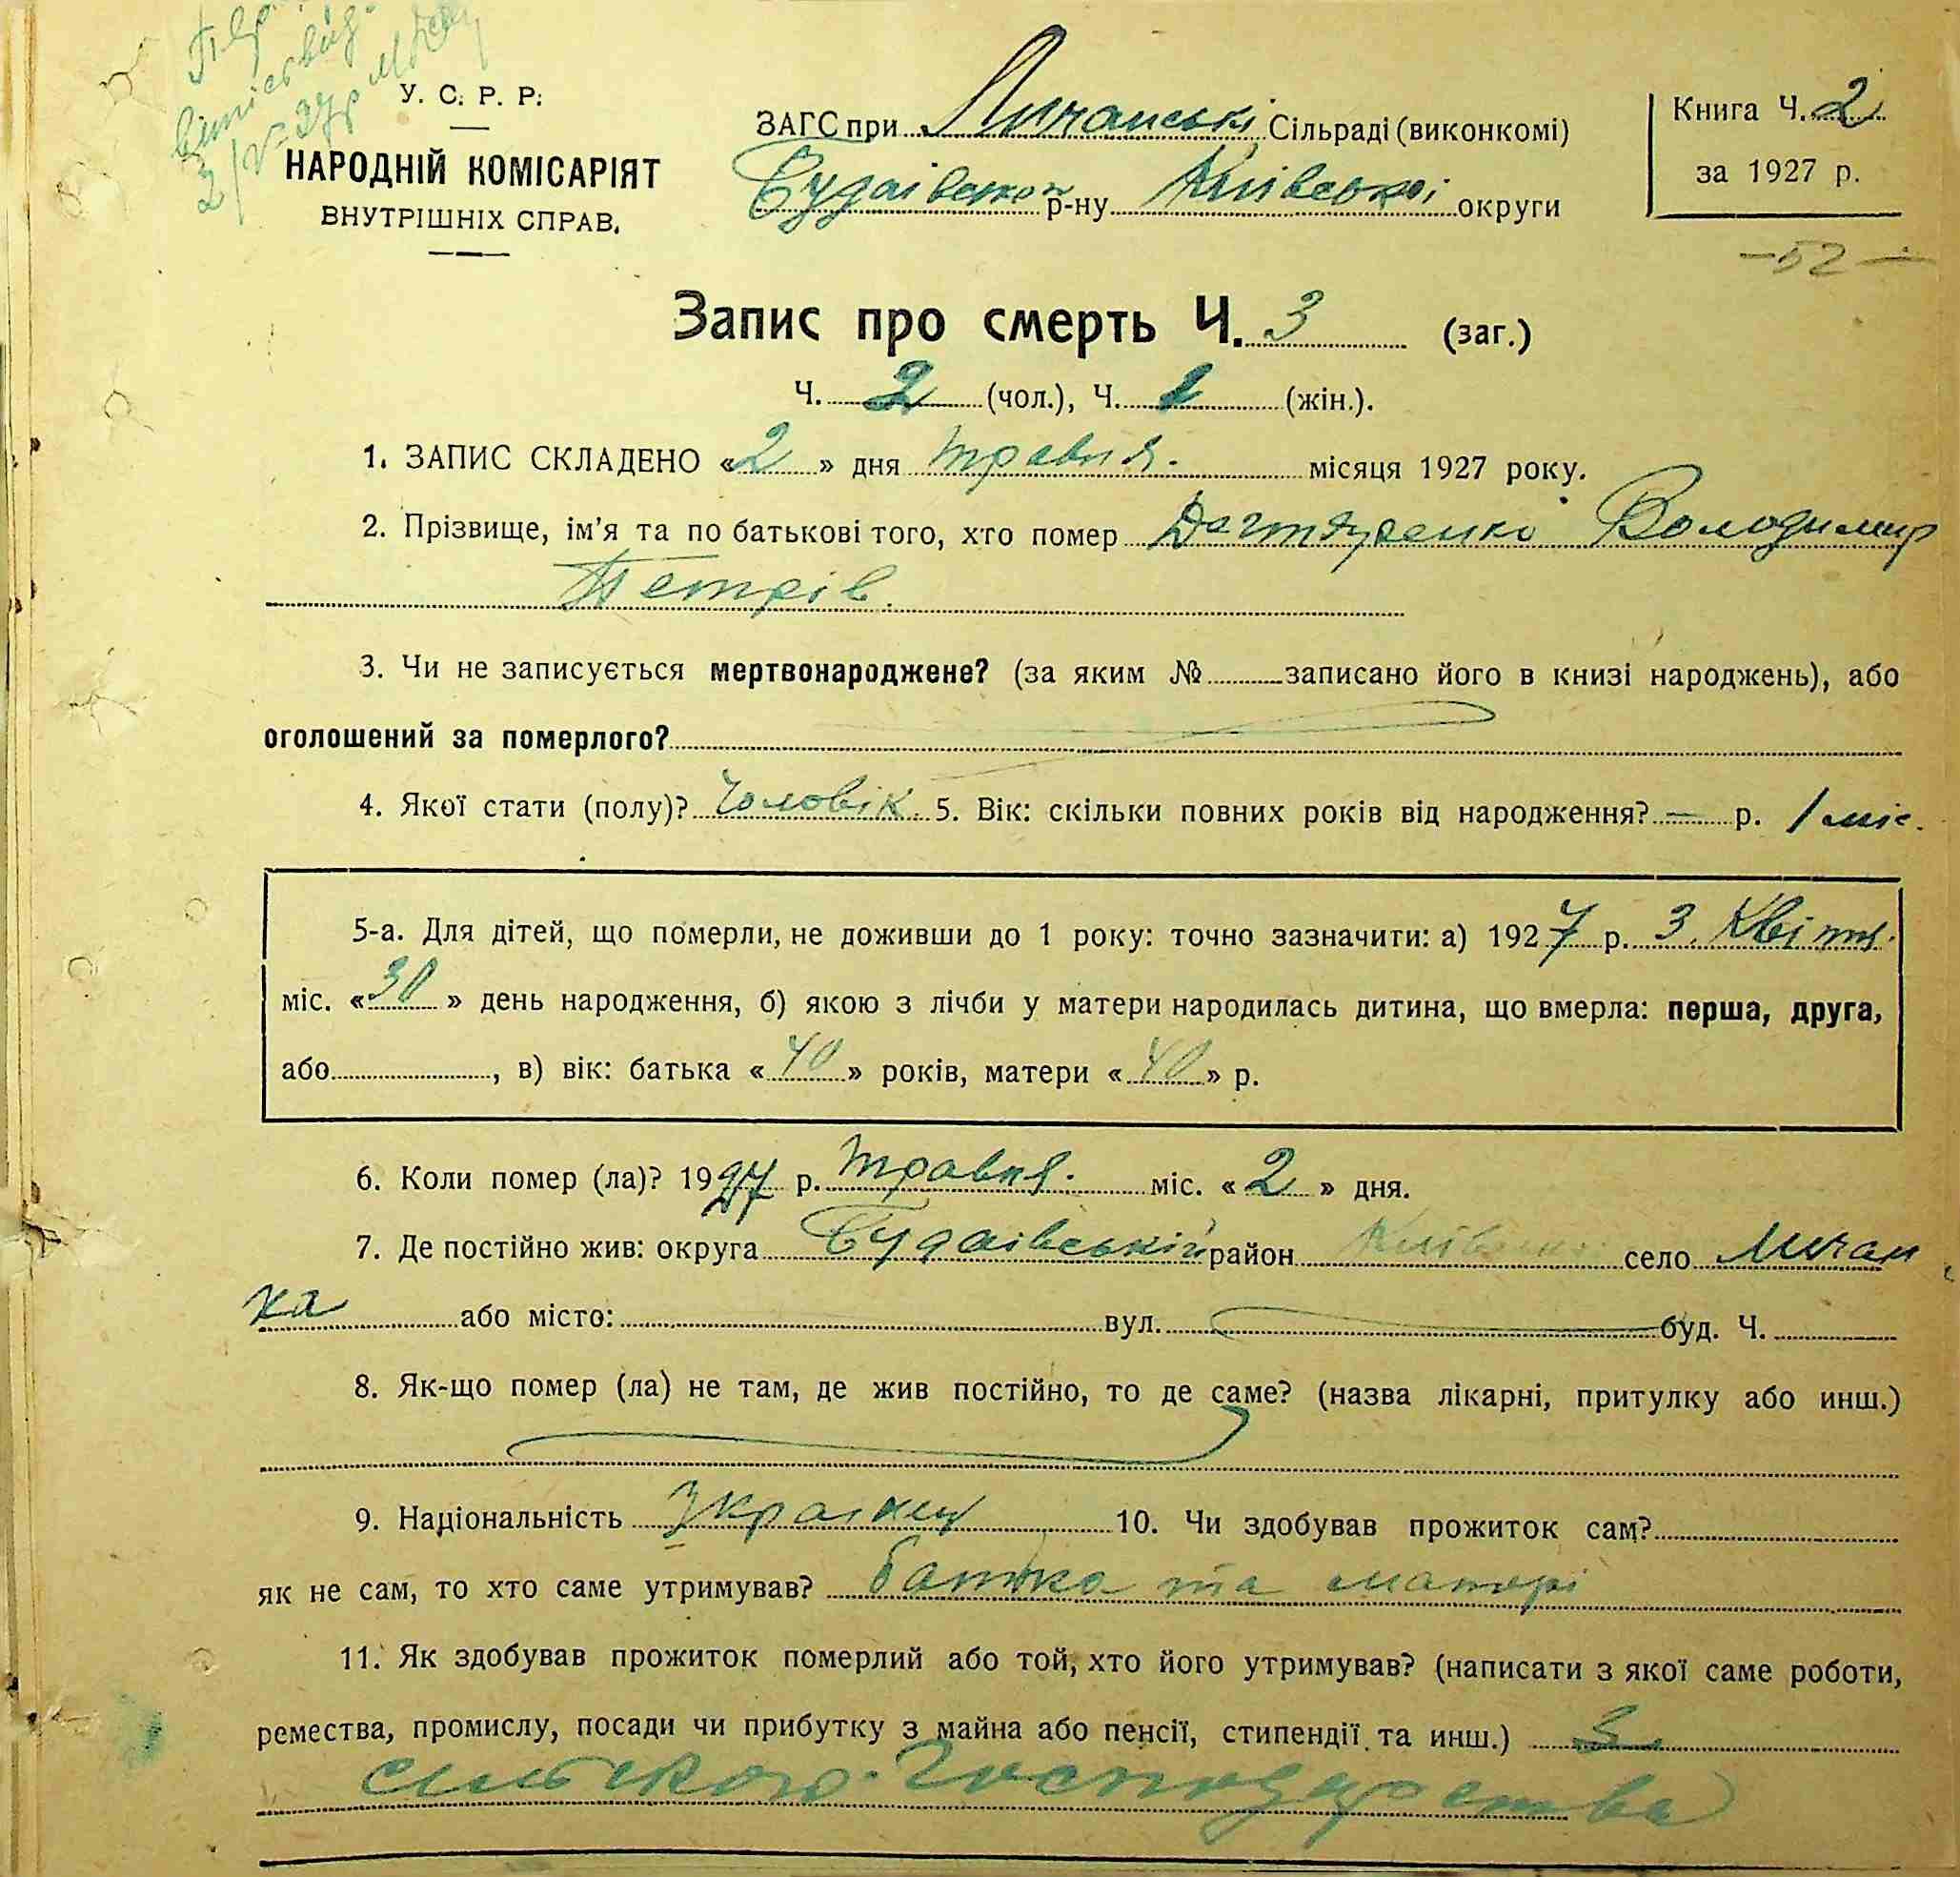 У. С. Р. Р.
НАРОДНІЙ КОМІСАРІЯТ
ВНУТРІШНІХ СПРАВ.
ЗАГС при Личанські Сільраді (виконкомі)
Будаівском р-ну Київської округи
Книга Ч. 2
за 1927 р.
— 52 —
Запис про смерть Ч. 3 (заг.)
Ч. 2 (чол.), Ч. 1 (жін.).
1. ЗАПИС СКЛАДЕНО « 2 » дня травня. місяця 1927 року.
2. Прізвище, ім'я та по батькові того, хто помер Дегтяренко Володимир
Петрів.
3. Чи не записується мертвонароджене? (за яким № записано його в книзі народжень), або
оголошений за померлого?
4. Якої стати (полу)? Чоловік. 5. Вік: скільки повних років від народження? — р. 1 міс.
5-а. Для дітей, що померли, не доживши до 1 року: точно зазначити: а) 1927 р. 3. Квітня.
міс. « 30 » день народження, б) якою з лічби у матери народилась дитина, що вмерла: перша, друга,
або , в) вік: батька « 40 » років, матери « 40 » р.
6. Коли помер (ла)? 1927 р. травня. міс. « 2 » дня.
7. Де постійно жив: округа Будаівський район Київсько село Личан
ка або місто: вул. буд. Ч.
8. Як-що помер (ла) не там, де жив постійно, то де саме? (назва лікарні, притулку або инш.)
9. Національність Украінец 10. Чи здобував прожиток сам?
як не сам, то хто саме утримував? батька та матері
11. Як здобував прожиток померлий або той, хто його утримував? (написати з якої саме роботи,
ремества, промислу, посади чи прибутку з майна або пенсії, стипендії та инш.) З
сільского. Господарства